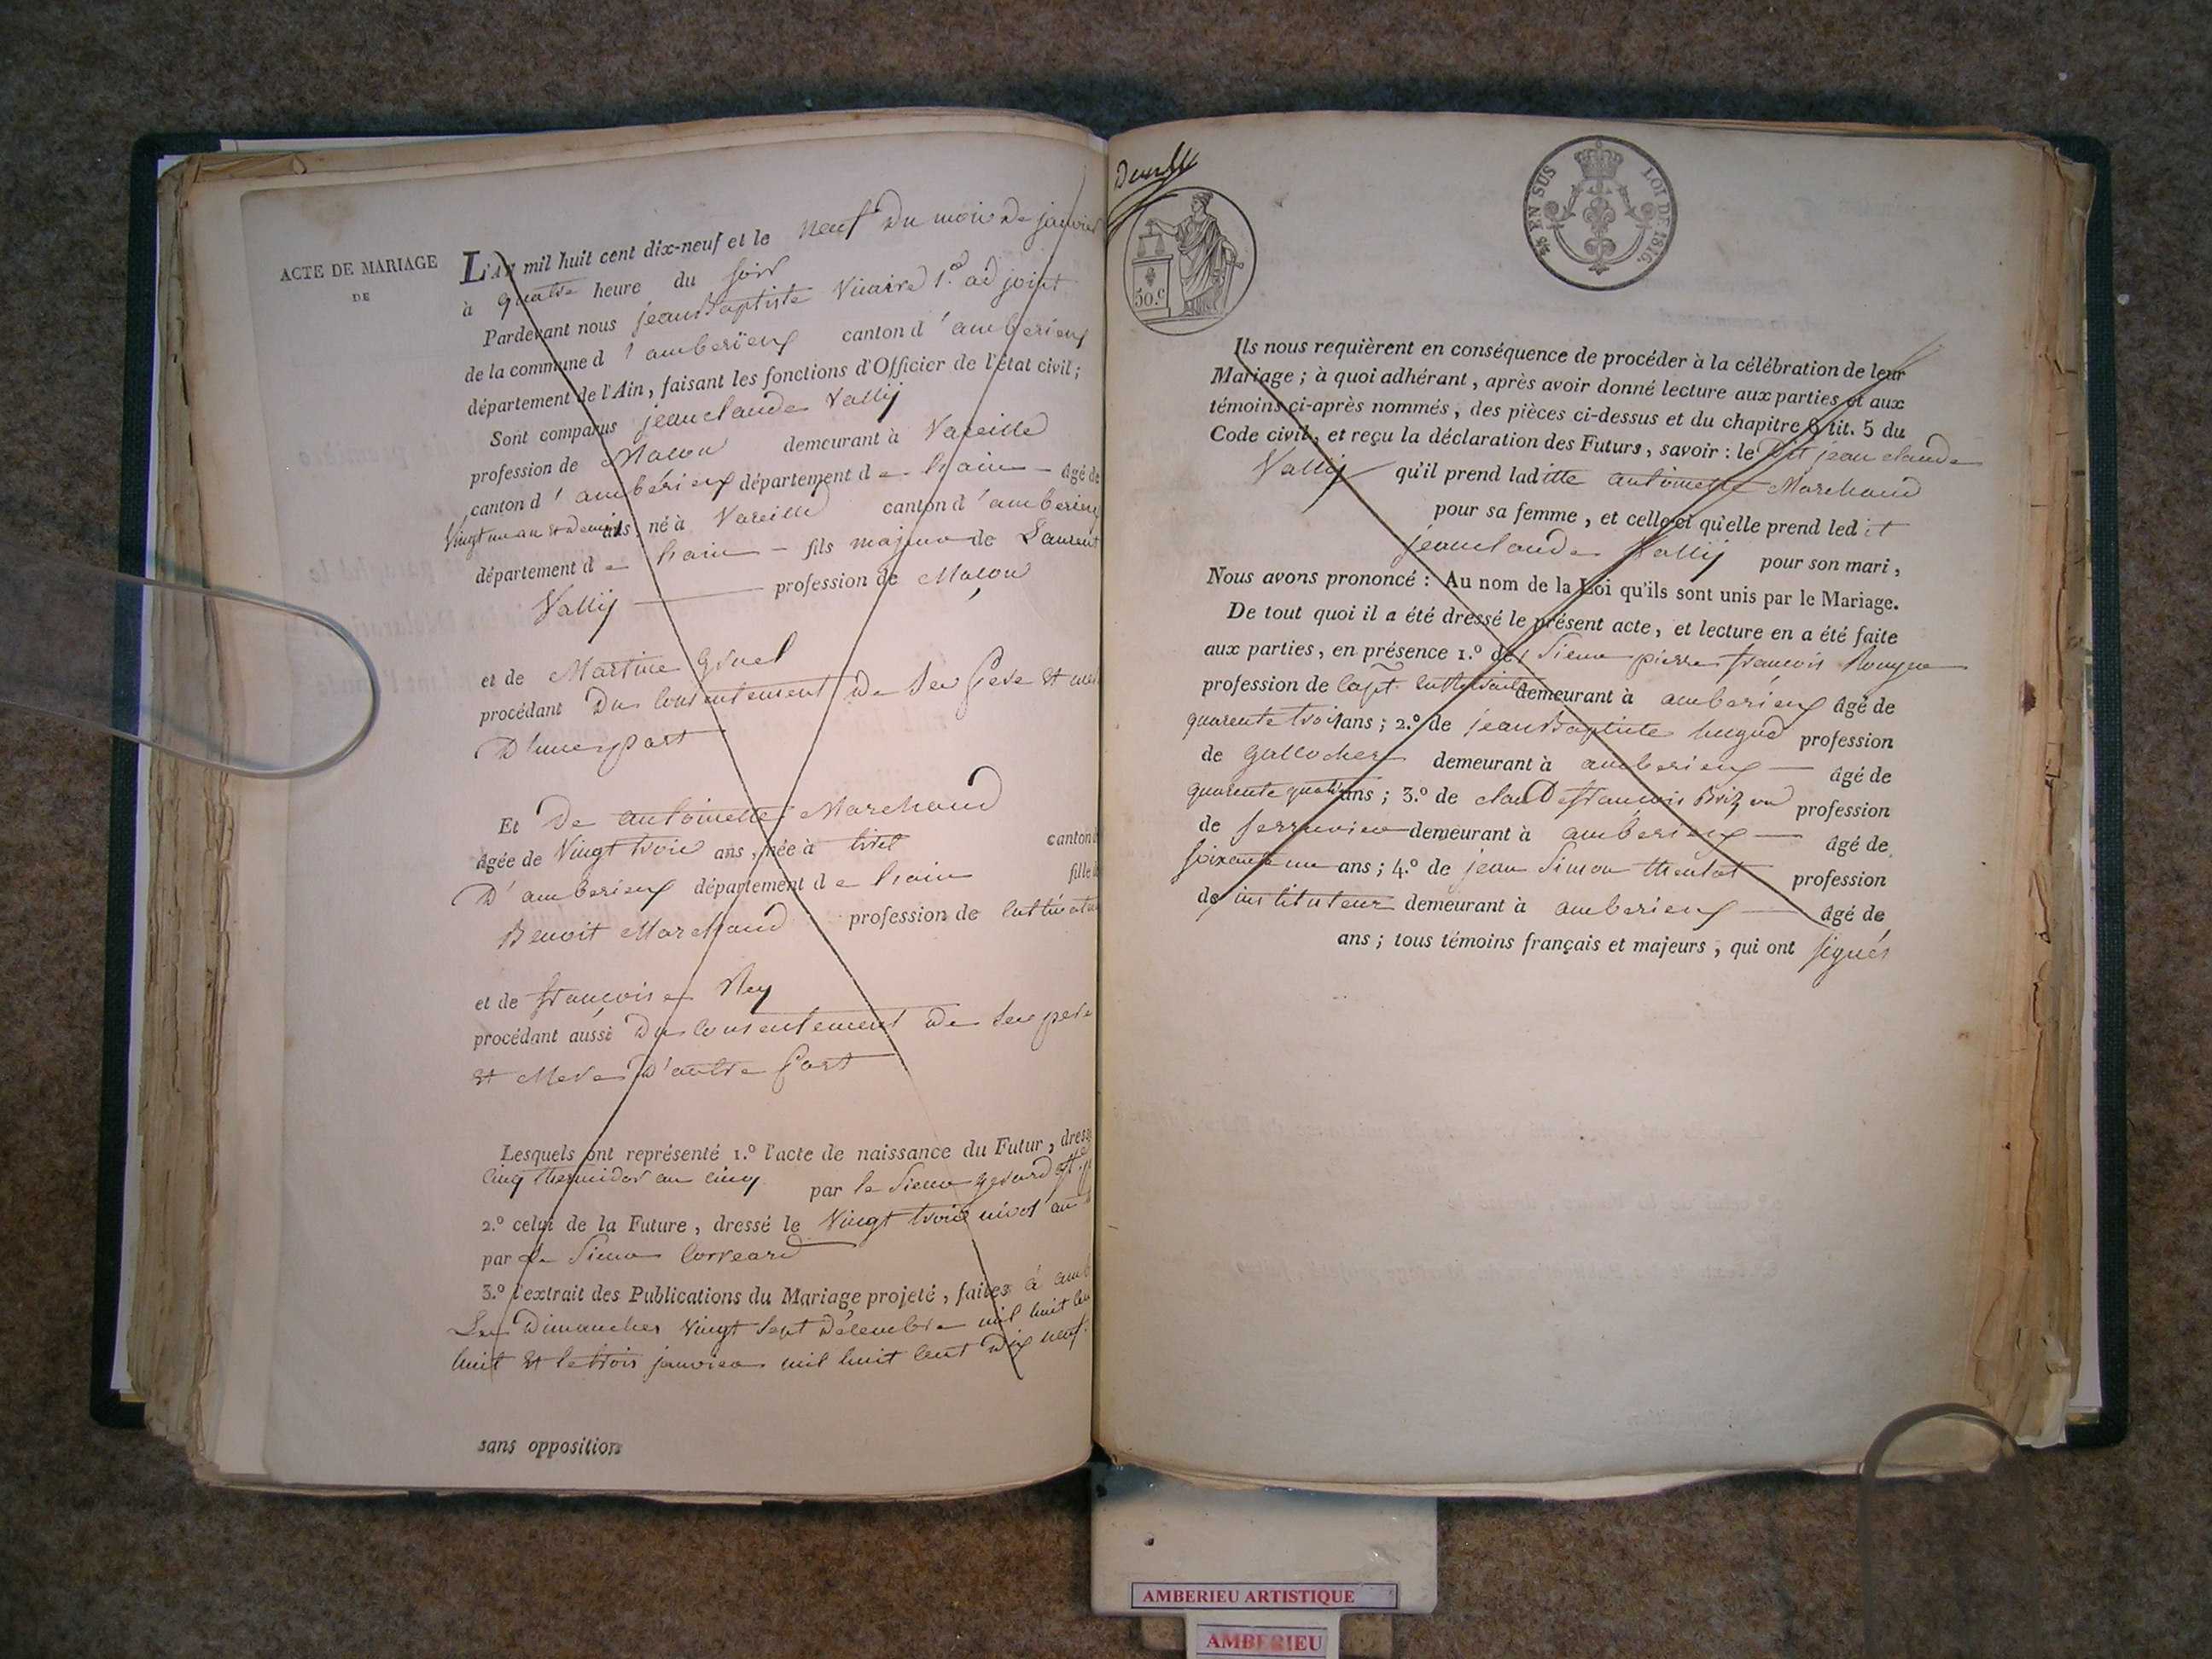 ACTE DE MARIAGE
DE
L'AN mil huit cent dix-neuf et le neuf du mois de janvier
à quatre heure du soir
Pardevant nous jean Baptiste Vicaire 1.er adjoint
de la commune d'amberieux canton d'amberieux
département de l'Ain, faisant les fonctions d'Officier de l'état civil;
Sont comparus jean claude Vallij
profession de Macon demeurant à Vareille
canton d'amberieux département de l'ain âgé de
Vingt un an et demi ans, né à Vareille canton d'amberieux
département de l'ain fils majeur de Laurent
Vallij profession de Macon
et de Martine
procédant du consentement de ses pere et mere
D'une part
Et De antoinette Marchand
âgée de Vingt trois ans, née à tiret canton
D'amberieux département de l'ain fille
Benoit Marchand profession de cultivateur
et de françoise Rey
procédant aussi du consentement de ses pere
et Mere D'autre part
Lesquels ont représenté 1.º l'acte de naissance du Futur, dressé
cinq thermidor an cinq par le Sieur gerard
2.º celui de la Future, dressé le Vingt trois nivos an
par le Sieur Correard
3.º l'extrait des Publications du Mariage projeté, faites à amb
Les Dimanches Vingt sept Décembre mil huit cen
huit et le trois janvier mil huit cent dix neuf.
sans opposition
Double
50.c
25 EN SUS
LOI DE 1816.
Ils nous requièrent en conséquence de procéder à la célébration de leur
Mariage; à quoi adhérant, après avoir donné lecture aux parties et aux
témoins ci-après nommés, des pièces ci-dessus et du chapitre 6 tit. 5 du
Code civil, et reçu la déclaration des Futurs, savoir: le Dit jean claude
Vallij qu'il prend laditte antoinette Marchand
pour sa femme, et celle-ci qu'elle prend ledit
jean claude Vallij pour son mari,
Nous avons prononcé: Au nom de la Loi qu'ils sont unis par le Mariage.
De tout quoi il a été dressé le présent acte, et lecture en a été faite
aux parties, en présence 1.º de Sieur pierre françois
profession de Capt. demeurant à amberieux âgé de
quarente trois ans; 2.º de jean Baptiste hugue profession
de Gallocher demeurant à amberieux âgé de
quarente quatre ans; 3.º de claude françois profession
de serrurier demeurant à amberieux âgé de
soixante un ans; 4.º de jean Simon profession
de instituteur demeurant à amberieux âgé de
ans; tous témoins français et majeurs, qui ont signés
AMBERIEU ARTISTIQUE
AMBERIEU